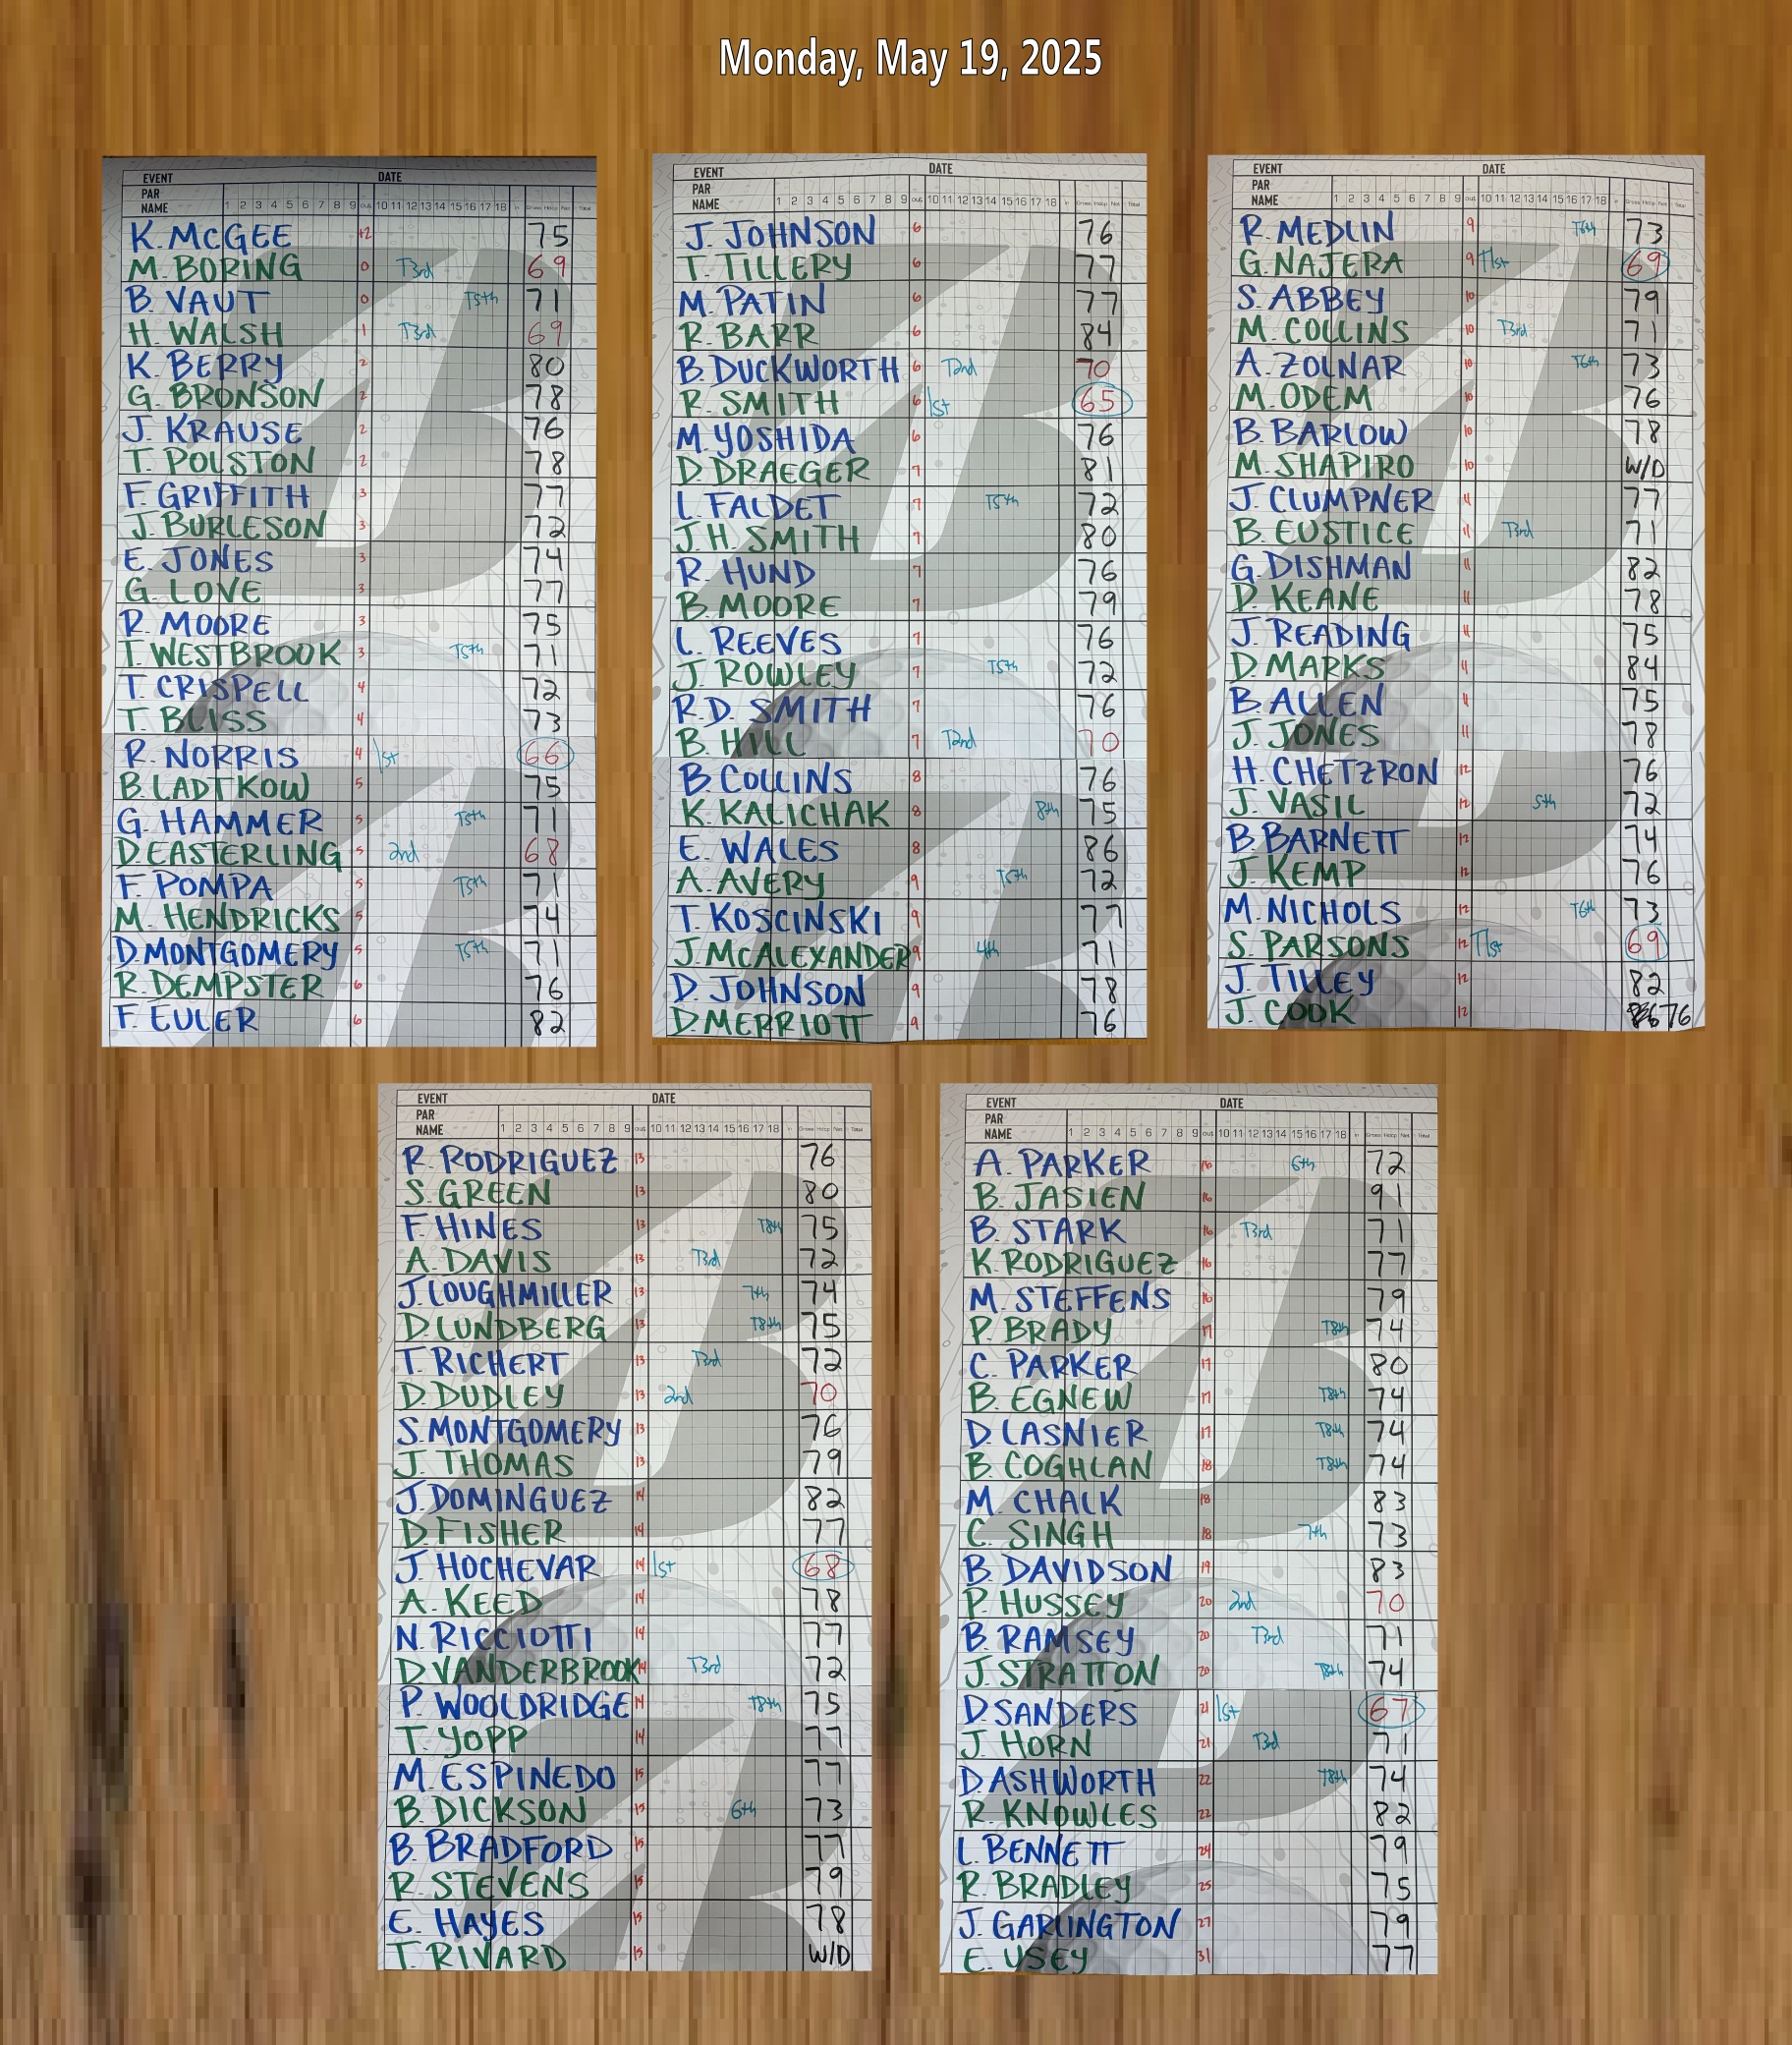 Monday, May 19, 2025
EVENT DATE
PAR
NAME 1 2 3 4 5 6 7 8 9 out 10 11 12 13 14 15 16 17 18 In Gross Hdcp Net Total
K. McGEE +2 75
M. BORING 0 T3rd 69
B. VAUT 0 T5th 71
H. WALSH 1 T3rd 69
K. BERRY 2 80
G. BRONSON 2 78
J. KRAUSE 2 76
T. POLSTON 2 78
F. GRIFFITH 3 77
J. BURLESON 3 72
E. JONES 3 74
G. LOVE 3 77
R. MOORE 3 75
T. WESTBROOK 3 T5th 71
T. CRISPELL 4 72
T. BLISS 4 73
R. NORRIS 4 1st 66
B. LADTKOW 5 75
G. HAMMER 5 T5th 71
D. EASTERLING 5 2nd 68
F. POMPA 5 T5th 71
M. HENDRICKS 5 74
D. MONTGOMERY 5 T5th 71
R. DEMPSTER 6 76
F. EULER 6 82
EVENT DATE
PAR
NAME 1 2 3 4 5 6 7 8 9 out 10 11 12 13 14 15 16 17 18 In Gross Hdcp Net Total
J. JOHNSON 6 76
T. TILLERY 6 77
M. PATIN 6 77
R. BARR 6 84
B. DUCKWORTH 6 T2nd 70
R. SMITH 6 1st 65
M. YOSHIDA 6 76
D. DRAEGER 7 81
L. FALDET 7 T5th 72
J.H. SMITH 7 80
R. HUND 7 76
B. MOORE 7 79
L. REEVES 7 76
J. ROWLEY 7 T5th 72
R.D. SMITH 7 76
B. HILL 7 T2nd 70
B. COLLINS 8 76
K. KALICHAK 8 8th 75
E. WALES 8 86
A. AVERY 9 T5th 72
T. KOSCINSKI 9 77
J. McALEXANDER 9 4th 71
D. JOHNSON 9 78
D. MERRIOTT 9 76
EVENT DATE
PAR
NAME 1 2 3 4 5 6 7 8 9 out 10 11 12 13 14 15 16 17 18 In Gross Hdcp Net Total
R. MEDLIN 9 T6th 73
G. NAJERA 9 T1st 69
S. ABBEY 10 79
M. COLLINS 10 T3rd 71
A. ZOLNAR 10 T6th 73
M. ODEM 10 76
B. BARLOW 10 78
M. SHAPIRO 10 W/D
J. CLUMPNER 11 77
B. EUSTICE 11 T3rd 71
G. DISHMAN 11 82
D. KEANE 11 78
J. READING 11 75
D. MARKS 11 84
B. ALLEN 11 75
J. JONES 11 78
H. CHETZRON 12 76
J. VASIL 12 5th 72
B. BARNETT 12 74
J. KEMP 12 76
M. NICHOLS 12 T6th 73
S. PARSONS 12 T1st 69
J. TILLEY 12 82
J. COOK 12 76
EVENT DATE
PAR
NAME 1 2 3 4 5 6 7 8 9 out 10 11 12 13 14 15 16 17 18 In Gross Hdcp Net Total
R. RODRIGUEZ 13 76
S. GREEN 13 80
F. HINES 13 T8th 75
A. DAVIS 13 T3rd 72
J. LOUGHMILLER 13 7th 74
D. LUNDBERG 13 T8th 75
T. RICHERT 13 T3rd 72
D. DUDLEY 13 2nd 70
S. MONTGOMERY 13 76
J. THOMAS 13 79
J. DOMINGUEZ 14 82
D. FISHER 14 77
J. HOCHEVAR 14 1st 68
A. KEED 14 78
N. RICCIOTTI 14 77
D. VANDERBROOK 14 T3rd 72
P. WOOLDRIDGE 14 T8th 75
T. YOPP 14 77
M. ESPINEDO 15 77
B. DICKSON 15 6th 73
B. BRADFORD 15 77
R. STEVENS 15 79
E. HAYES 15 78
T. RIVARD 15 W/D
EVENT DATE
PAR
NAME 1 2 3 4 5 6 7 8 9 out 10 11 12 13 14 15 16 17 18 In Gross Hdcp Net Total
A. PARKER 16 6th 72
B. JASIEN 16 91
B. STARK 16 T3rd 71
K. RODRIGUEZ 16 77
M. STEFFENS 16 79
P. BRADY 17 T8th 74
C. PARKER 17 80
B. EGNEW 17 T8th 74
D. LASNIER 17 T8th 74
B. COGHLAN 18 T8th 74
M. CHALK 18 83
C. SINGH 18 7th 73
B. DAVIDSON 19 83
P. HUSSEY 20 2nd 70
B. RAMSEY 20 T3rd 71
J. STRATTON 20 T8th 74
D. SANDERS 21 1st 67
J. HORN 21 T3rd 71
D. ASHWORTH 22 T8th 74
R. KNOWLES 22 82
L. BENNETT 24 79
R. BRADLEY 25 75
J. GARLINGTON 27 79
E. USEY 31 77